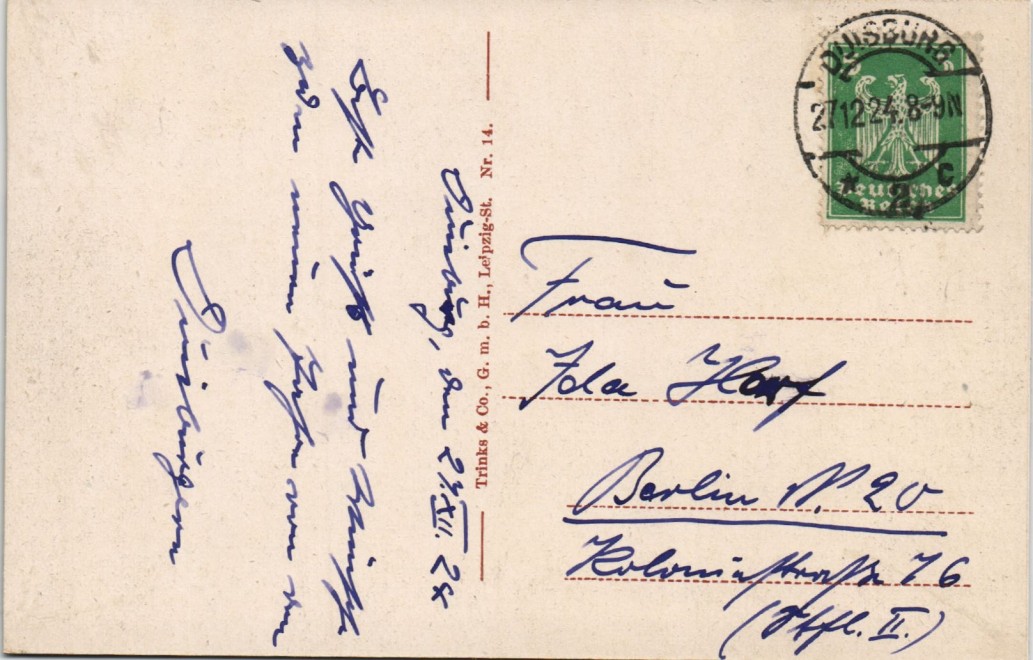 Duisburg, den 27/XII. 24
Beste Grüße und Wünsche
zum neuen Jahre von den
Duisburgern
Trinks & Co., G. m. b. H., Leipzig-St. Nr. 14.
DUISBURG
27.12.24. 8-9N
* 2 C
Deutsches
Reich
Frau
Ida Harf
Berlin N. 20
Koloniestraße 76
(Stfl. II.)